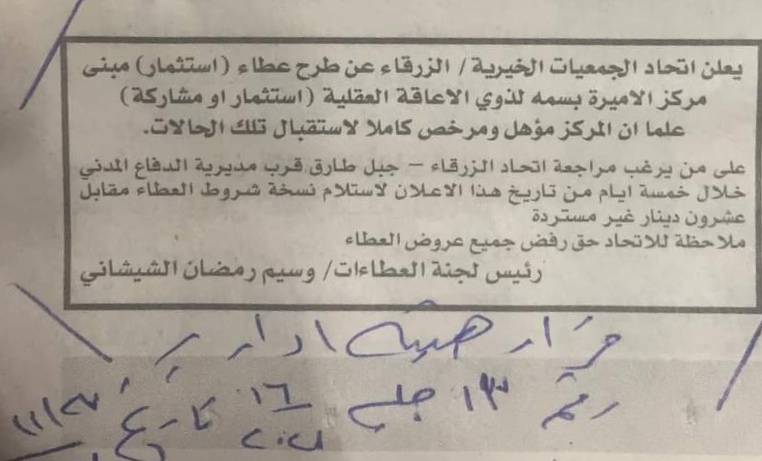 يعلن اتحاد الجمعيات الخيرية / الزرقاء عن طرح عطاء (استثمار) مبنى
مركز الاميرة بسمه لذوي الاعاقة العقلية (استثمار او مشاركة)
علما ان المركز مؤهل ومرخص كاملا لاستقبال تلك الحالات.
على من يرغب مراجعة اتحاد الزرقاء – جبل طارق قرب مديرية الدفاع المدني
خلال خمسة ايام من تاريخ هذا الاعلان لاستلام نسخة شروط العطاء مقابل
عشرون دينار غير مستردة
ملاحظة للاتحاد حق رفض جميع عروض العطاء
رئيس لجنة العطاءات/ وسيم رمضان الشيشاني
قرار هيئة ادارية
رقم ١٣ جلسة ١٦ تاريخ